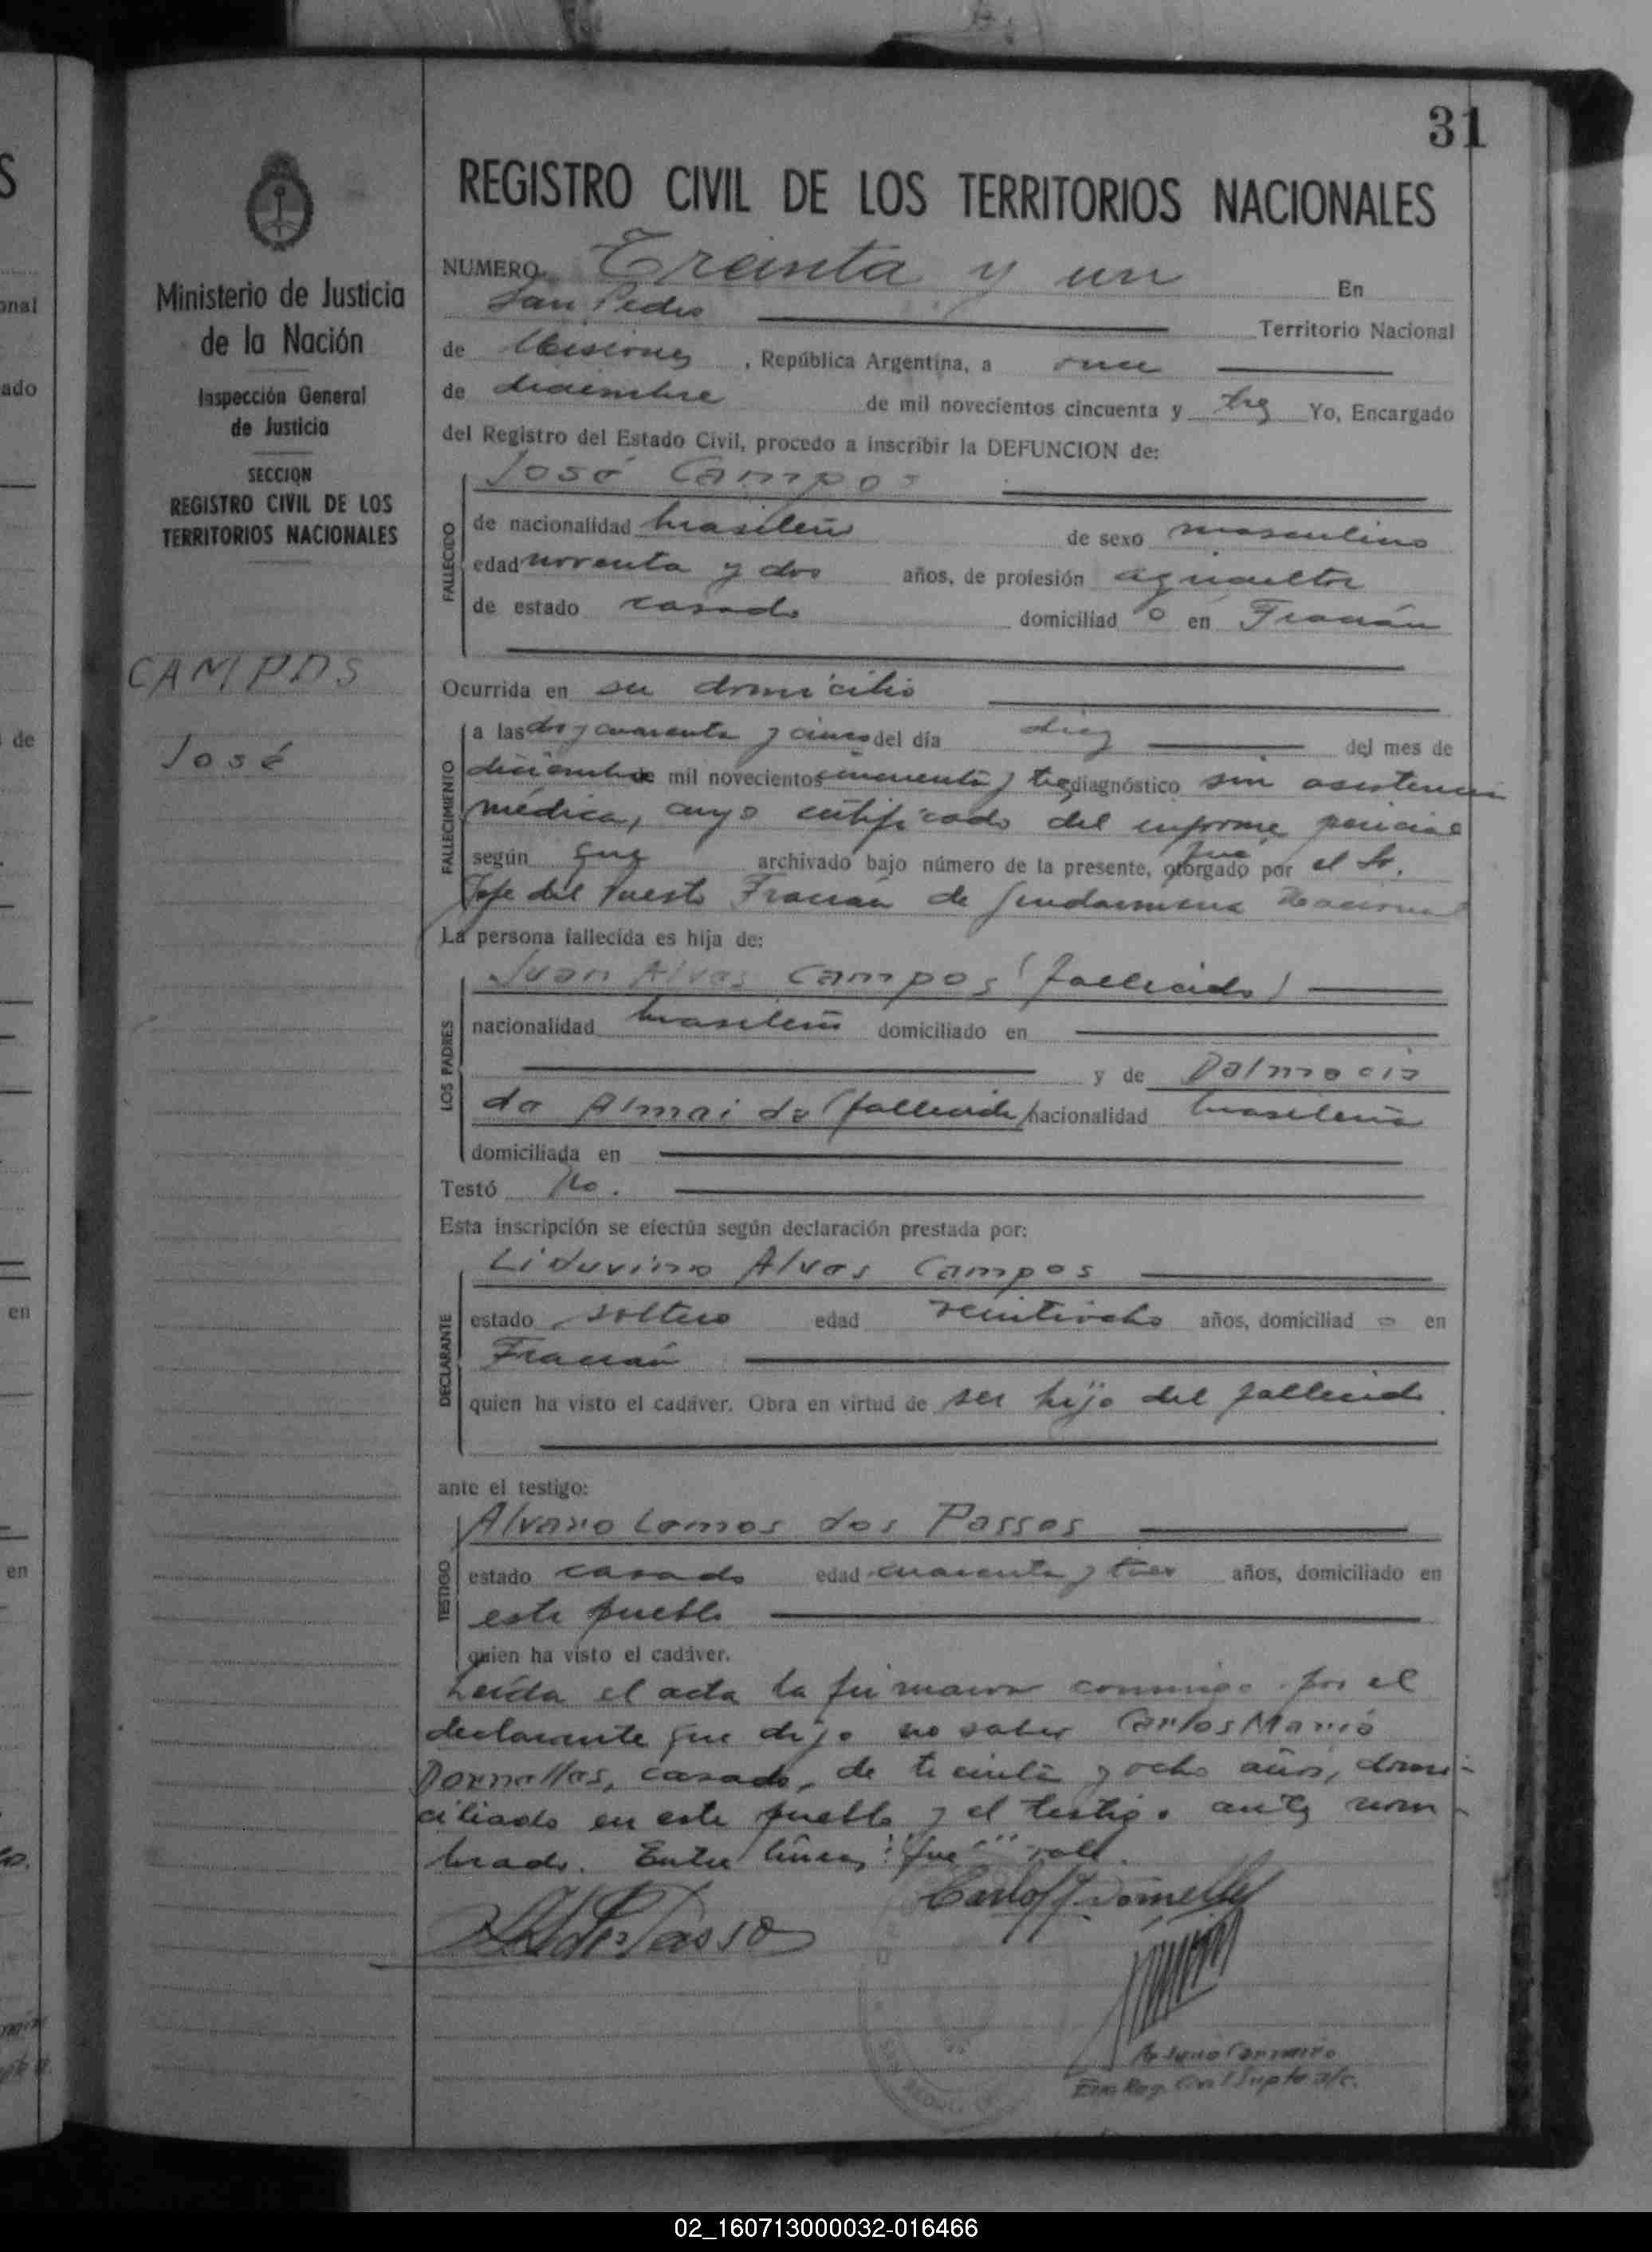 31
REGISTRO CIVIL DE LOS TERRITORIOS NACIONALES
Ministerio de Justicia
de la Nación
Inspección General
de Justicia
SECCION
REGISTRO CIVIL DE LOS
TERRITORIOS NACIONALES
CAMPOS
José
NUMERO Treinta y un En
San Pedro Territorio Nacional
de Misiones, República Argentina, a once
de diciembre de mil novecientos cincuenta y tres Yo, Encargado
del Registro del Estado Civil, procedo a inscribir la DEFUNCION de:
José Campos
FALLECIDO
de nacionalidad brasileño de sexo masculino
edad noventa y dos años, de profesión agricultor
de estado casado domiciliado en Fracrán
Ocurrida en su domicilio
FALLECIMIENTO
a las dos y cuarenta y cinco del día diez del mes de
diciembre de mil novecientos cincuenta y tres diagnóstico sin asistencia
médica, cuyo certificado del informe pericial
según que archivado bajo número de la presente, fue otorgado por el Sr.
Jefe del Puesto Fracrán de Gendarmeria Nacional
La persona fallecida es hija de:
LOS PADRES
Juan Alves Campos (fallecido)
nacionalidad brasileño domiciliado en
y de Dalmacia
de Almaida (fallecida) nacionalidad brasileña
domiciliada en
Testó No.
Esta inscripción se efectúa según declaración prestada por:
DECLARANTE
Liduvino Alves Campos
estado soltero edad veintiocho años, domiciliado en
Fracrán
quien ha visto el cadáver. Obra en virtud de ser hijo del fallecido
ante el testigo:
TESTIGO
Alvaro Lemos dos Passos
estado casado edad cuarenta y tres años, domiciliado en
este pueblo
quien ha visto el cadáver.
Leída el acta la firmaron conmigo por el
declarante que dijo no saber Carlos María
Dornelles, casado, de treinta y ocho años, domi-
ciliado en este pueblo y el testigo antes nom-
brado. Entre líneas: "fue" vale.
Enc. Reg. Civil Supte a/c.
02_160713000032-016466